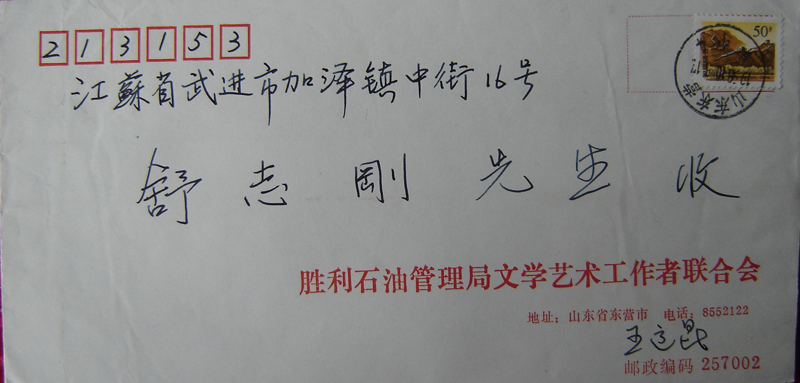 213153
50
山东东营
江蘇省武进市加泽镇中街16号
舒志剛先生收
胜利石油管理局文学艺术工作者联合会
地址：山东省东营市 电话：8552122
邮政编码 257002